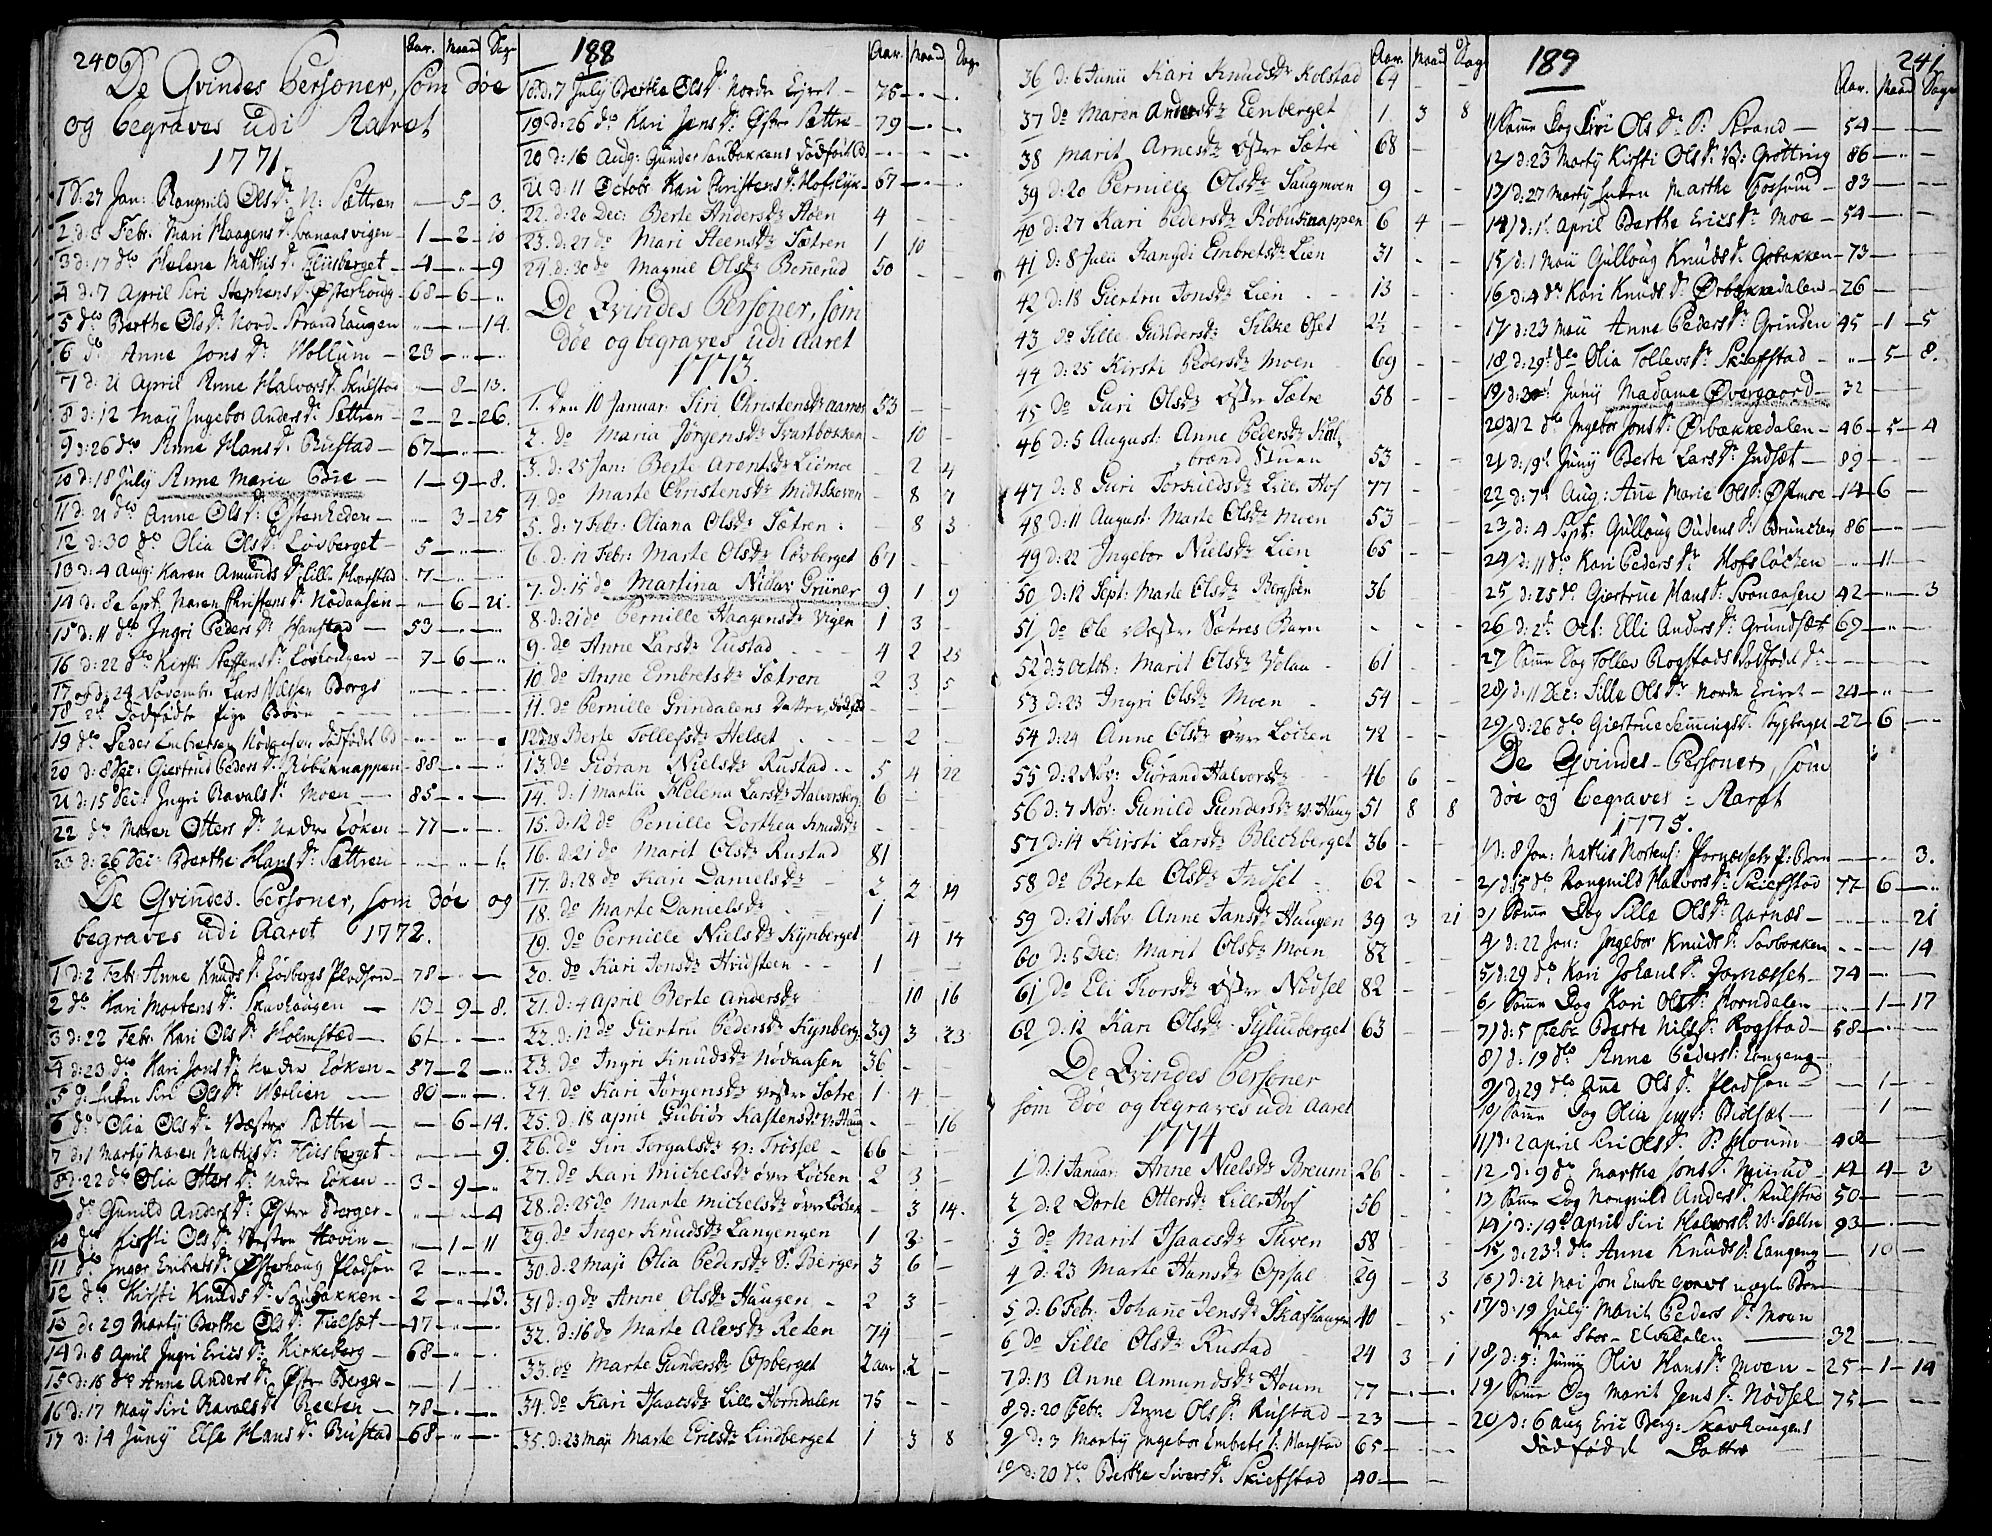 240
De Qvindes Personer, som døe
og begraves udi Aaret
1771
Aar. Maan. Dage
1 d: 27 Jan: Rangnild Ols Dr. N: Sættren — 5 — 3.
2 d: 3 Febr. Mari Haagens Dr. Svenaasvigen — 1 — 2 — 10
3 d: 17 dto Helene Mathis Dr. Fliisberget — 4 — " — 9
4 d: 7 April Siri Stephens Dr. Østerhoug — 68 — 6 — "
5 dto Berthe Ols Dr. Nord-Strandhaugen — " — " — 14.
6 do Anne Jons Dr. Wollum — 23 — " — "
7 d: 21 April Anne Halvors Dr. Skulstad — 8 — 13.
8 d: 12 Maij Ingebor Anders Dr. Sættren — 2 — 2 — 26.
9 d: 26 dto Anne Hans Dr. Rustad — 67
10 d: 18 July Anne Marie — 1 — 9 — 8.
11 d: 21 dto Anne Ols Dr. Østenheden — " — 3 — 25
12 d: 30 do Olia Ols Dr. Løvberget — 5 — " — "
13 d: 4 Aug: Karen Amunds Dr. Lille Harstad — 7 — " — "
14 d: 8 Sept. Maren Christens Dr. Nødaasen — " — 6 — 21.
15 d: 11 dto Ingri Peders Dr. Harstad — 53
16 d: 22 dto Kirsti Steffens Dr. — 7 — 6 — "
17 og d: 24 Novembr. Lars Nilssen Borgs
18 2de Dødfødte Pige Børn
19 dto Peder Embretsen Nødaasen Dødfødt B
20 d: 8 Dec: Giertrud Peders Dr. Robuknappen — 88
21 d: 15 Dec: Ingri Ravals Dr. Moen — 85
22 do Maren Otters Dr. Nedre Løken — 77
23 d: 26 Dec: Berthe Hans Dr. Sættren — " — " — 1.
De Qvindes Personer, som døe og
begraves udi Aaret 1772.
1 d: 2 Febr. Anne Knuds Dr. Løvbergs Pladsen — 78
2 do Kari Mortens Dr. Skavhaugen — 13 — 9 — 8.
3 d: 22 Febr. Kari Ols Dr. Holmstad — 61
4 d: 23 dto Kari Jons Dr. Nedre Løken — 57 — 2 — "
5 d: Siri Ols Dr. Wærlien — 80
6 do Olia Ols Dr. Væstre Sættre — 6 — 14.
7 d: 1 Marty Maren Mathis Dr. Fliisberget — " — " — 9.
8 d: 22 do Olia Otters Dr. Nedre Løken — 3 — 9 — "
do Gunild Anders Dr. Østre Berger — " — " — 4
10 do Kirsti Ols Dr. Væstre Hovin — " — 1 — 11
11 do Inger Embrets Dr. Østerhoug Pladsen 2 — " — "
12 do Kirsti Knuds Dr. Saubakken — 2 — " — 13.
13 d: 29 Marty Berthe Ols Dr. Fielsæt — 47 — " — "
14 d: 6 April Ingri Erics Dr. Kirkeberg — 68 — " — "
15 d: 16 do Anne Anders Dr. Østre Berger — 1 — "
16 d: 17 Maij Siri Ravals Dr. Reeten — 78
17 d: 14 Juny Else Hans Dr. Rustad — 68 — " — "
188
Aar. Maan. Dag
18 d: 7 July Berthe Ols Dr. Nordre Eyret — 76
19 d: 26 do Kari Jens Dr. Østre Sættre — 79
20 d: 16 Aug: Gunder Saubakkens dødfødt B
21 d: 11 Octobr. Kari Christens Dr. Hofsløyk — 67
22. d: 20 Dec: Berte Andersdr. Moen 4
23. d: 27 do Mari Steensdr. Sætren 1 10
24. d: 30 do Magnil Olsdr. Bennerud 50
De Qvindes Personer, som
døe og begraves udi Aaret
1773.
1. den 10 Januar. Siri Christensdr. Aarnes 53
2. do Maria Jørgensdr. Svartbakken - 10 -
3. d: 25 Jan: Berte Arentsdr. Lidmoe - 2 4
4. do Marte Christensdr. Midtskoven - 8 7
5. d: 7 Febr: Oliana Olsdr. Sætren - 8 3
6. d: 11 Febr: Marte Olsdr. Løvberget 61
7. d: 15 do Martina Grüner 9 1 9
8. d: 21 do Pernille Haagensdr. Vigen 1 3
9. do Anne Larsdr. Rustad 4 2 23
10. do Anne Embretsdr. Sætren 2 3 5
11. do Pernille Grindalens Datter, dødfød
12. d: 28 Berte Tollefsdr. Helset - 2
13. do Giøran Nielsdr. Rustad 5 4 22
14. d: 1 Martii Helena Larsdr. Halvorsberg 6
15. d: 12 do Pernille Dorthea Knudsdr.
16. d: 21 do Marit Olsdr. Rustad 81
17. d: 28 do Kari Danielsdr. 2 2 14
18. do Marte Danielsdr. 1
19. do Pernille Nielsdr. Kynberget 4 14
20. do Kari Jensdr. Hvidsteen 1
21. d: 4 April Berte Andersdr. 10 16
22. d: 12 do Giertru Pedersdr. Kynberg 39 3 23
23. do Ingri Knudsdr. Nødaasen 36
24. do Kari Jørgensdr. Vester Sætre 1 4
25. d: 18 April Gubiør Kastensdr. v: Haug - - 16
26. do Siri Torgalsdr. v: Trøssel 66
27. do Kari Michelsdr. øvre Løken 2 3
28. d: 25 do Marte Michelsdr. øvre Løken - 3 14.
29. do Inger Knudsdr. Langengen 1 3
30. d: 2 Maji Olia Pedersdr. S: Berger 3 6
31. d: 9 do Anne Olsdr. Haugen 2 3
32. d: 16 do Marte Alersdr. Reten 74
33. do Marte Gundersdr. Opberget 2 aar 2 -
34. do Kari Isaacsdr. Lille Horndalen 75
35. d: 23 Maji Marte Ericsdr. Lindberget 1 3 8
Aar Maan Dag
36 d: 6 Junii Kari Knudsdr. Kolstad 64
37 do Maren Andersdr. Eenberget 1. 3 8
38 Marit Arnesdr. Øster Sætre 68
39 d: 20 Pernille Olsdr. Saugmoen 9
40 d: 27 Kari Pedersdr. Robuknappen 6 4
41 d: 8 Julii Rangdi Embretsdr. Lien 31
42 d: 18 Giertru Jonsdr. Lien 13
43 do Sille Gundersdr. Silske Oset 2½
44 d: 25 Kirsti Pedersdr. Moen 69
45 do Guri Olsdr. Øster Sætre 58
46 d: 5 August: Anne Pedersdr.
brænd Stuen 53
47 d: 8 Guri Torkildsdr. Lille Hof 77
48 d: 11 August: Marte Olsdr. Moen 53
49 d: 22 Ingebor Nielsdr. Lien 65
50 d: 12 Sept: Marte Olsdr. Bergsøen 36
51 do Ole Vester Sætres Barn
52 d: 3 Octob: Marit Olsdr. Velaa 61
53 d: 23 Ingri Olsdr. Moen 54
54 d: 24 Anne Olsdr. øvre Løken 72
55 d: 2 Nov: Giørand Halvorsdr. 46 6
56 d: 7 Nov: Gunild Gundersdr. v: Haug 51 8 8
57 d: 14 Kirsti Larsdr. Blechberget 36
58 do Berte Olsdr. Indset 62
59 d: 21 Nov: Anne Jansdr. Haugen 39 3 21
60 d: 5 Dec: Marit Olsdr. Moen 82
61 do Eli Thorsdr. Øster Nødsel 82
62 d: 12 Kari Olsdr. Syliuberget 63
De Qvindes Personer
som døe og begraves udi Aaret
1774
1 d: 1 Januar: Anne Nielsdr. Breum 26
2 d: 2 Dorte Ottersdr. Lille Hof 56
3 do Marit Isaacsdr. Tiven 58
4 d: 23 Marte Hansdr. Opsal 29 - 3
5 d: 6 Febr: Johane Jensdr. Skafhaugen 40 5
6 do Sille Olsdr. Rustad 24 3 1
7 d: 13 Anne Amundsdr. Houm 77
8/ d: 20 Febr. Anne Ols Dr. Rustad — 23
9/ d: 3 Marty Ingebor Embrets Dr. Harstad 65
10/ d: 20 dto Berthe Sivers Dr. Skiefstad 40
189
241
Aar. Maan. Dage
11/ Samme Dag Siri Ols Dr. S: Strand — 54
12/ d: 23 Marty Kirsti Ols Dr. V: Grøttring 86
13/ d: 27 Marty Enken Marthe Fossund — 83
14/ d: 1te April Berthe Erics Dr. Moe — 54
15/ d: 1 Maii Gulloug Knuds Dr. Gobakken — 73
16 d: 4 do Kari Knuds Dr. Ørbækkedalen — 26
17/ d: 23 Maii Anne Peders Dr. Grinden 45 — 1 — 5
18 d: 29de dto Olia Tollevs Dr. Skiefstad — " — 5 — 8.
19/ d: 3 Junij Madame Overgaard — 32
20/ d: 12 dto Ingebor Jons Dr. Ørbækkedalen — 46 — 5 — 4
21/ d: 19de Junij Berte Lars Dr. Indsæt — 89
22 d: 7de Aug: Ane Marie Ols Dr. Østmoe — 14 — 6
23/ d: 4 Sept: Gulloug Oudens Dr. Brunchen 86
24/ d: 11 do Kari Peders Dr. Hofsløkken — " — 11
25 d: 25 do Giertrue Hans Dr. Svenaasen 42 — " — 3
26/ d: 2de Oct: Elli Anders Dr. Grundsæt 69
27/ Samme Dag Tollev Rogstads Dødfødt Dr.
28/ d: 11 Dec: Sille Ols Dr. Nordre Eriret — 24 — "
29/ d: 26 dto Giertrue Semmings Dr. Bygbaget 22 — 6
De Qvindes-Personer, som
døe og begraves i Aaret
1775.
1/ d: 8 Jan: Mathis Mortens: Jornæssets P: Barn — " — 3.
2/ d: 15 do Rangnild Halvors Dr. Skiefstad 77 — 6 — "
3/ Samme Dag Sille Ols Dr. Aarnæs — " — " — 21
4/ d: 22 Jan: Ingebor Knuds Dr. Saubakken — " — 14
5/ d: 29 do Kari Johans Dr. Jornæsset — 74
6/ Samme Dag Kari Ols Dr. Horndalen — 1 — 17
7/ d: 5 Febr. Berte Nils Dr. Rogstad — 58
8/ d: 19 dto Anne Peders Dr. Langeng
9/ d: 29 dto Ane Ols Dr. Pladsen — 1
10/ Samme Dag Olia Jens Dr. Bidsæt — 1
11/ d: 2 April Siri Ols Dr. S: Houm — 48
12/ d: 9 do Marthe Jons Dr. — 14 — 4 — 3
13/ Samme Dag Rangnild Anders Dr. Skulstad 50
14/ d: 14de April Siri Halvors Dr. N: Sættre 93
15/ d: 23de dto Anne Knuds Dr. Langeng — 10
16/ d: 21 Mai Jon Embr. Qvaves Barn
17/ d: 19 July Marit Peders Dr. Moen
fra Stor-Elvedalen — 32
18/ d: 5: Junij Oliv Hans Dr. Moen — 25 — 1 — 14
19/ Samme Dag Marit Jens Dr. Nødsel 75
20/ d: 6 Aug Eric Berg: Skavhaugens
dødfødd Datter